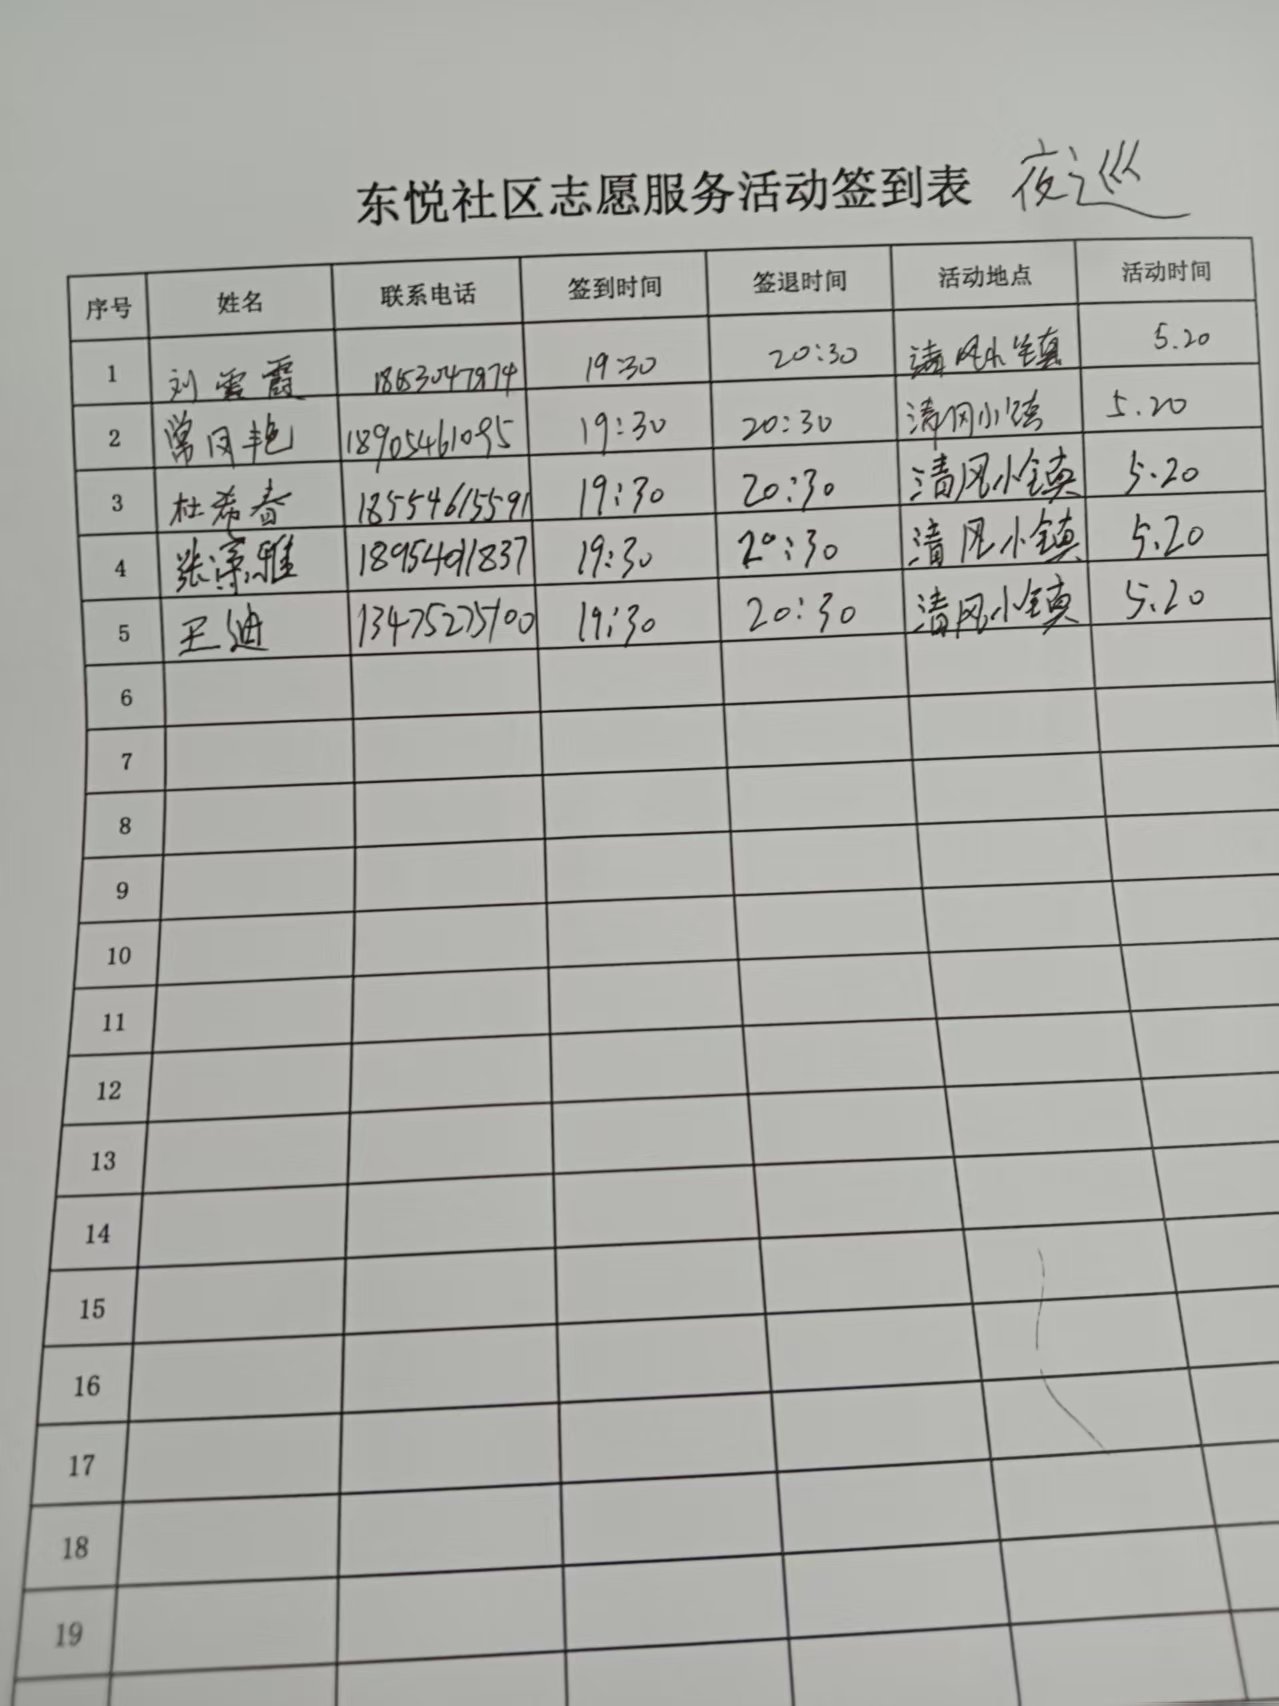 东悦社区志愿服务活动签到表 夜巡
序号 姓名 联系电话 签到时间 签退时间 活动地点 活动时间
1 刘雲霞 19:30 20:30 清风小镇 5.20
2 常风艳 18905461095 19:30 20:30 清风小镇 5.20
3 杜希春 18554615591 19:30 20:30 清风小镇 5.20
4 张 雅 19:30 20:30 清风小镇 5.20
5 王迪 13475275100 19:30 20:30 清风小镇 5.20
6
7
8
9
10
11
12
13
14
15
16
17
18
19